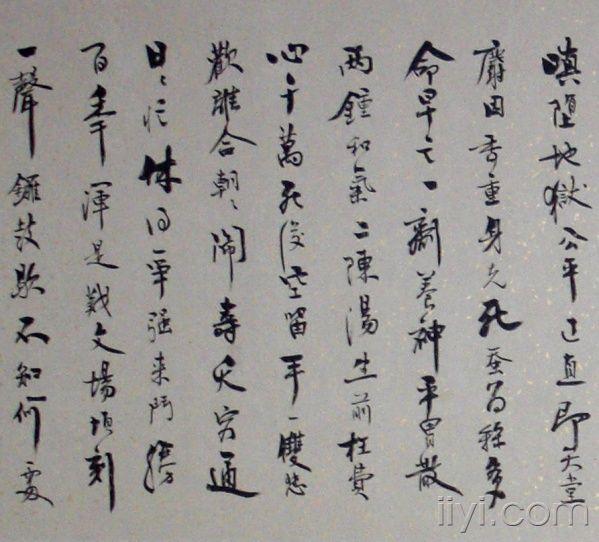 嗔墮地獄公平正直即天堂
麝因香重身先死蠶為絲多
命早亡一劑養神平胃散
兩鍾和氣二陳湯生前枉費
心千萬死後空留手一雙悲
歡離合朝々鬧壽夭窮通
日々忙休得爭強來鬥勝
百年渾是戲文場頃刻
一聲鑼鼓歇不知何處
iiyi.com